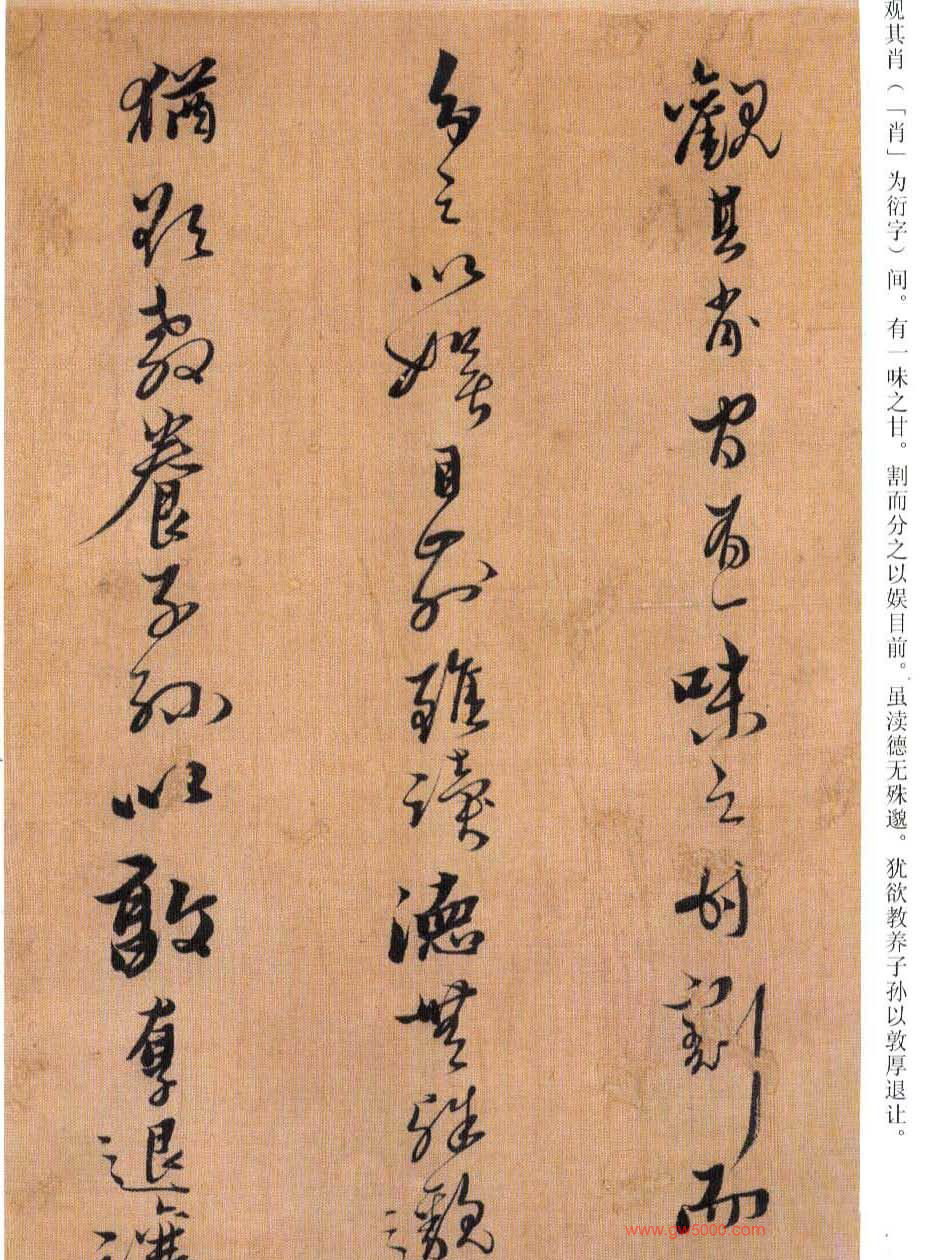 观其肖（「肖」为衍字）间。有一味之甘。割而分之以娱目前。虽渎德无殊邈。犹欲教养子孙以敦厚退让。
觀其肖間有一味之甘割而
分之以娛目前雖讀德無殊邈
猶欲教養子孫以敦厚退讓
www.gw5000.com